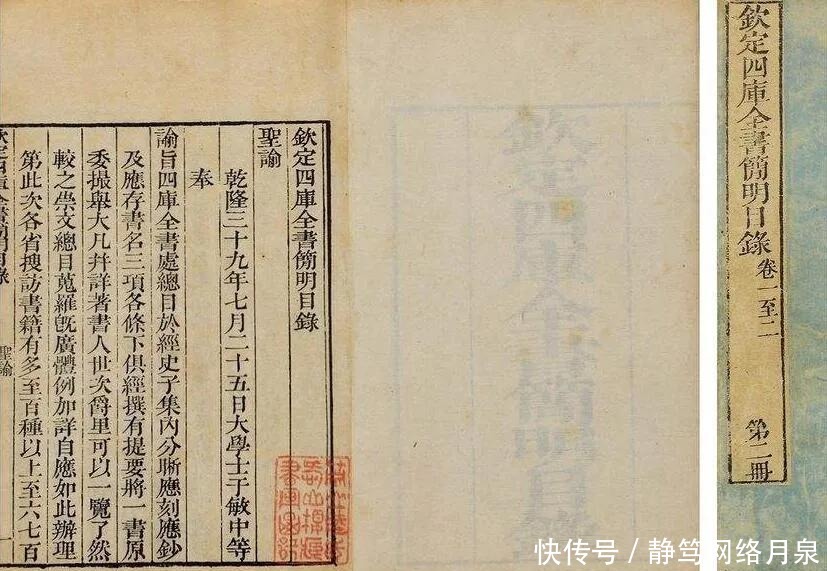 欽定四庫全書簡明目錄
聖諭
乾隆三十九年七月二十五日大學士于敏中等
奉
諭旨四庫全書處總目於經史子集內分晰應刻應鈔
及應存書名三項各條下俱經撰有提要將一書原
委撮舉大凡并詳著書人世次爵里可以一覽了然
較之崇文總目蒐羅旣廣體例加詳自應如此辦理
第此次各省搜訪書籍有多至百種以上至六七百
欽定四庫全書簡明目錄 聖諭 一
欽定四庫全書簡明目錄
欽定四庫全書簡明目錄 卷一至二 第二冊
快传号 / 静笃网络月泉